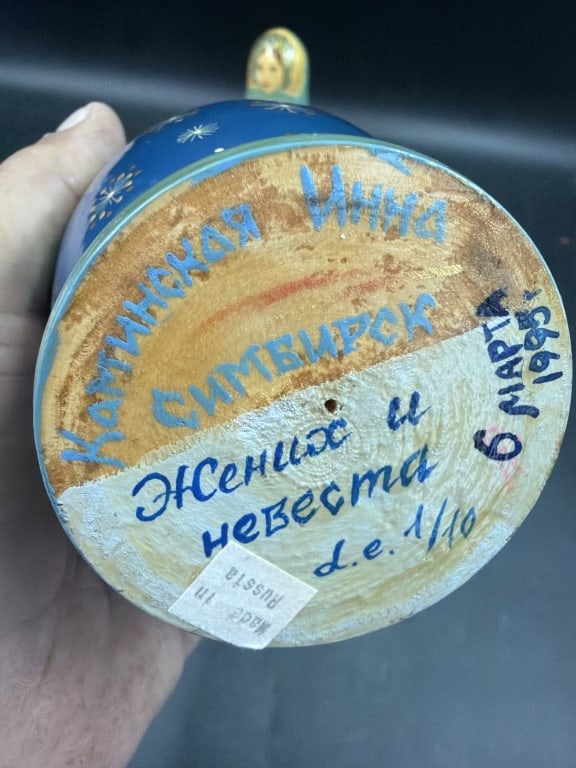 Картинская Инна
Симбирск
Жених и
невеста
d.e. 1/10
6 марта
1995г.
Made in
Russia